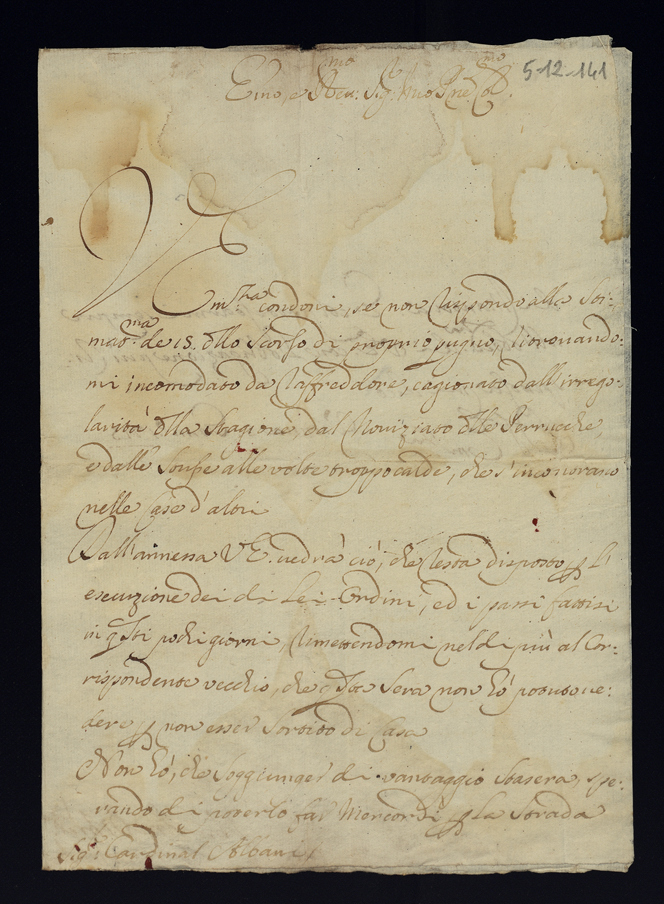 5-12-141
Emo, e Rev: Sig: mio Pne Co
mo mo
VE
ma
Emtza condoni, se non rispondo alla Sti-
mao: de 15. dello scorso di proprio pugno, ritrovando-
mi incomodato da raffreddore, cagionato dall'irrego-
larità della stagione, dal Noviziato delle Perrucche,
e dalle Stuffe alle volte troppo calde, che s'incontrano
nelle Case d'altri
Dall'annessa VE. vedrà ciò, che resta disposto p l'
esecuzione dei di Lei Ordini, ed i passi fattisi
in qsti pochi giorni, rimettendomi nel di più al Cor-
rispondente vecchio, che qsta sera non hò potuto ve-
dere p non esser sortito di Casa
Non hò, che soggiunger di vantaggio stasera, spe-
rando di poterlo far Mercordì p la strada
Sig: Cardinal Albani